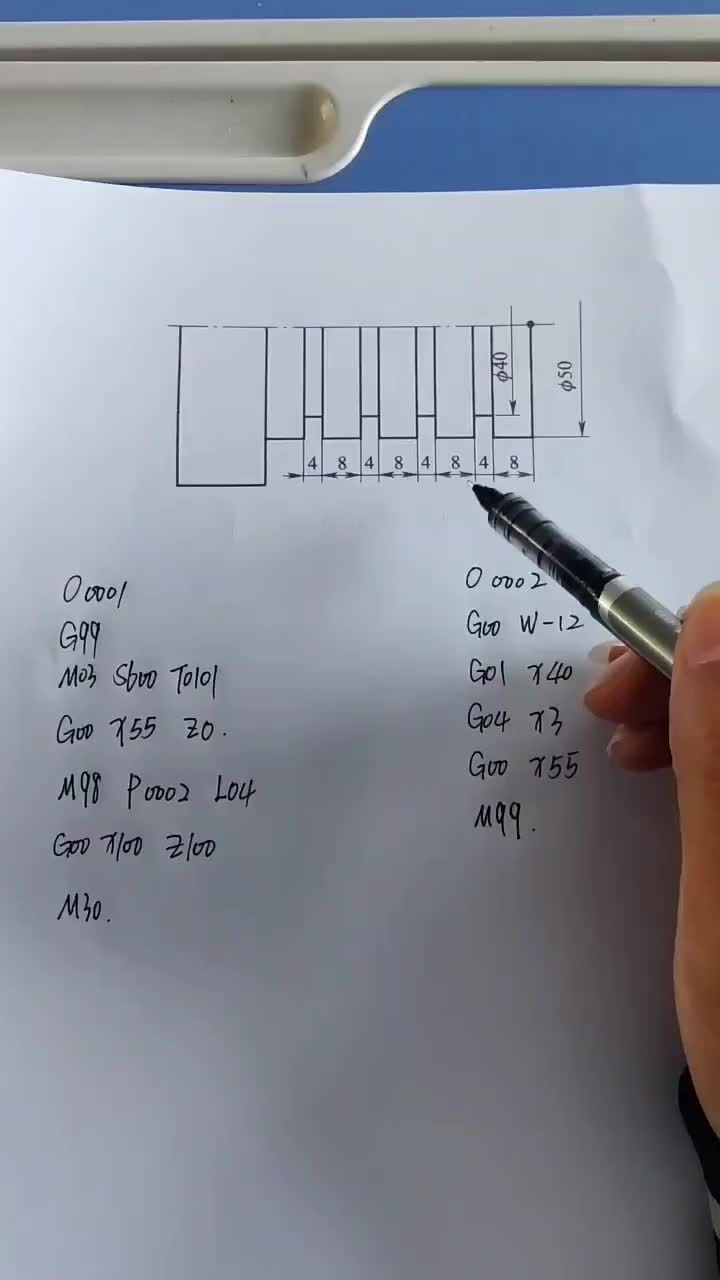 φ40
φ50
4 8 4 8 4 8 4 8
O0001
G99
M03 S600 T0101
G00 X55 Z0.
M98 P0002 L04
G00 X100 Z100
M30.
O0002
G00 W-12
G01 X40
G04 X3
G00 X55
M99.